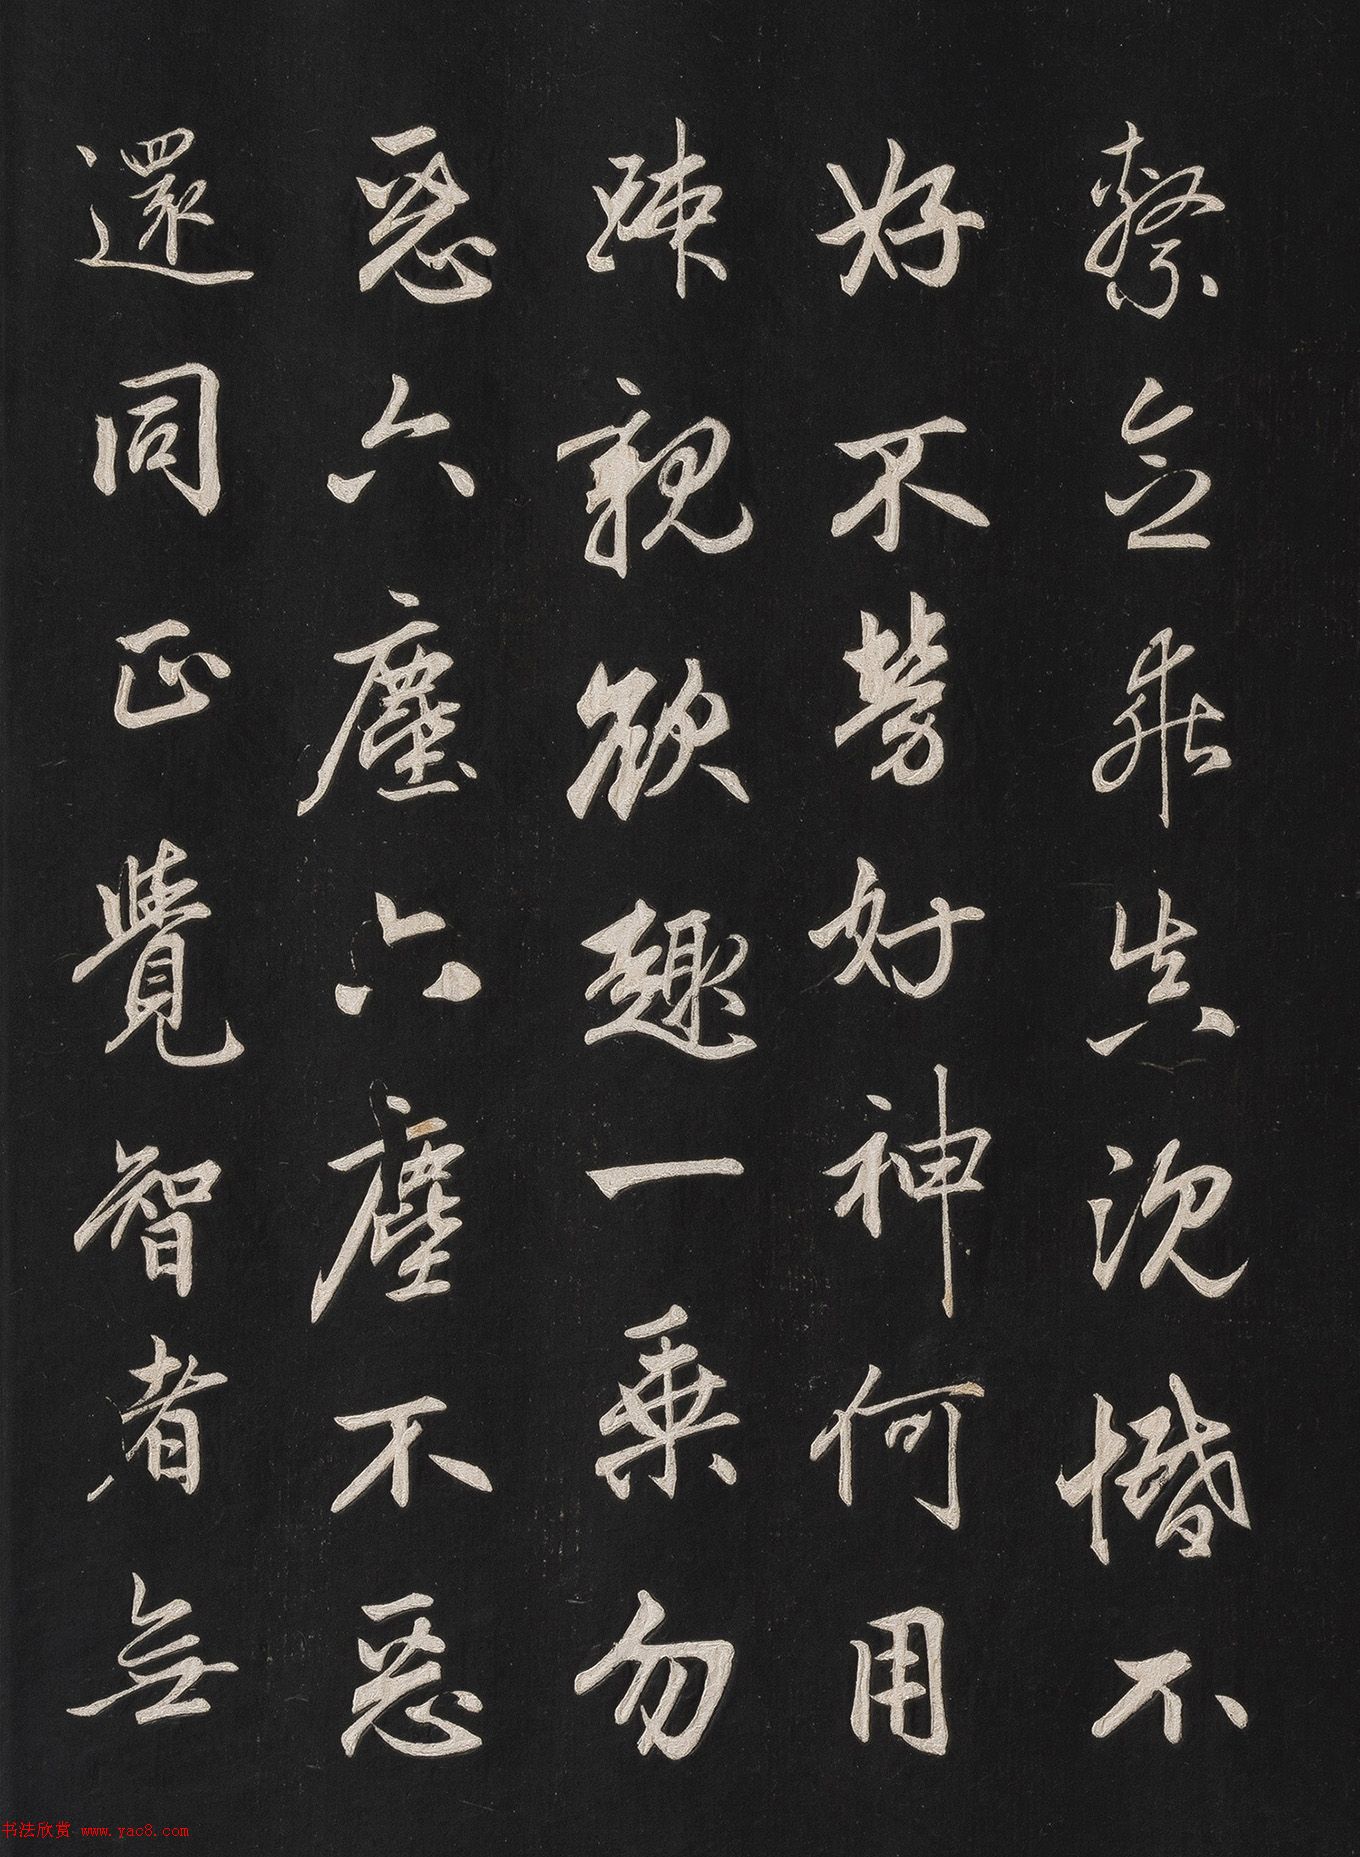 繫念乖真沉惛不
好不勞好神何用
疎親欲趣一乗勿
惡六塵六塵不惡
還同正覺智者無
书法欣赏 www.yac8.com